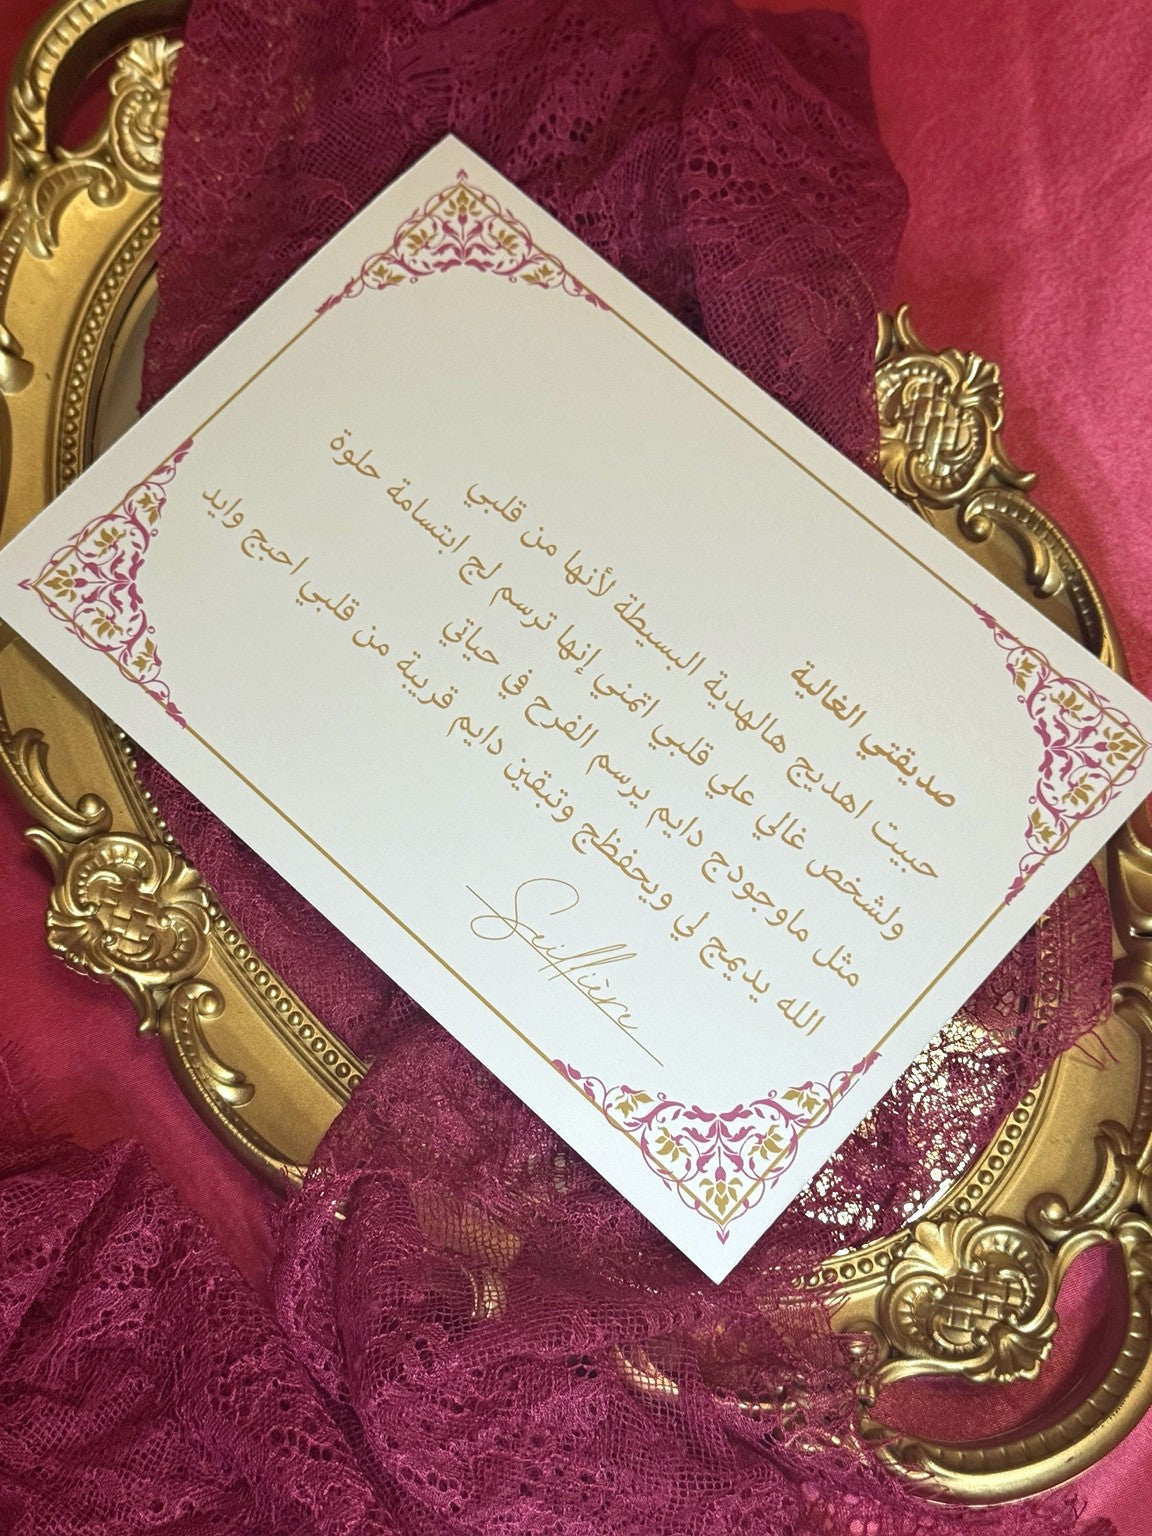 صديقتي الغالية
حبيت اهديج هالهدية البسيطة لأنها من قلبي
ولشخص غالي علي قلبي اتمنى إنها ترسم لج ابتسامة حلوة
مثل ماوجودج دايم يرسم الفرح في حياتي
الله يديمج لي ويحفظج وتبقين دايم قريبة من قلبي احبج وايد